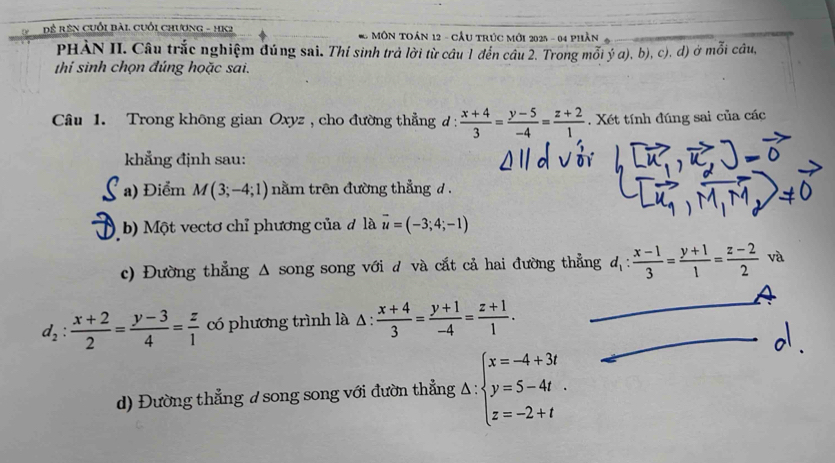 ĐỀ RÈN CUỐI BÀI, CUỐI CHƯƠNG - HK2
MÔN TOÁN 12 – CẤU TRÚC MỚI 2025 – 04 PHẦN
PHẦN II. Câu trắc nghiệm đúng sai. Thí sinh trả lời từ câu 1 đến câu 2. Trong mỗi ý a), b), c), d) ở mỗi câu,
thí sinh chọn đúng hoặc sai.
Câu 1. Trong không gian Oxyz , cho đường thẳng d : (x + 4)/3 = (y − 5)/−4 = (z + 2)/1 . Xét tính đúng sai của các
khẳng định sau:
Δ // d với { [u₁, u₂] = 0
[u₁, M₁M₂] ≠ 0
S a) Điểm M(3;−4;1) nằm trên đường thẳng d .
Đ b) Một vectơ chỉ phương của d là u = (−3;4;−1)
c) Đường thẳng Δ song song với d và cắt cả hai đường thẳng d₁ : (x − 1)/3 = (y + 1)/1 = (z − 2)/2 và
d₂ : (x + 2)/2 = (y − 3)/4 = z/1 có phương trình là Δ : (x + 4)/3 = (y + 1)/−4 = (z + 1)/1 .
d.
d) Đường thẳng d song song với đườn thẳng Δ : { x = −4 + 3t
y = 5 − 4t .
z = −2 + t